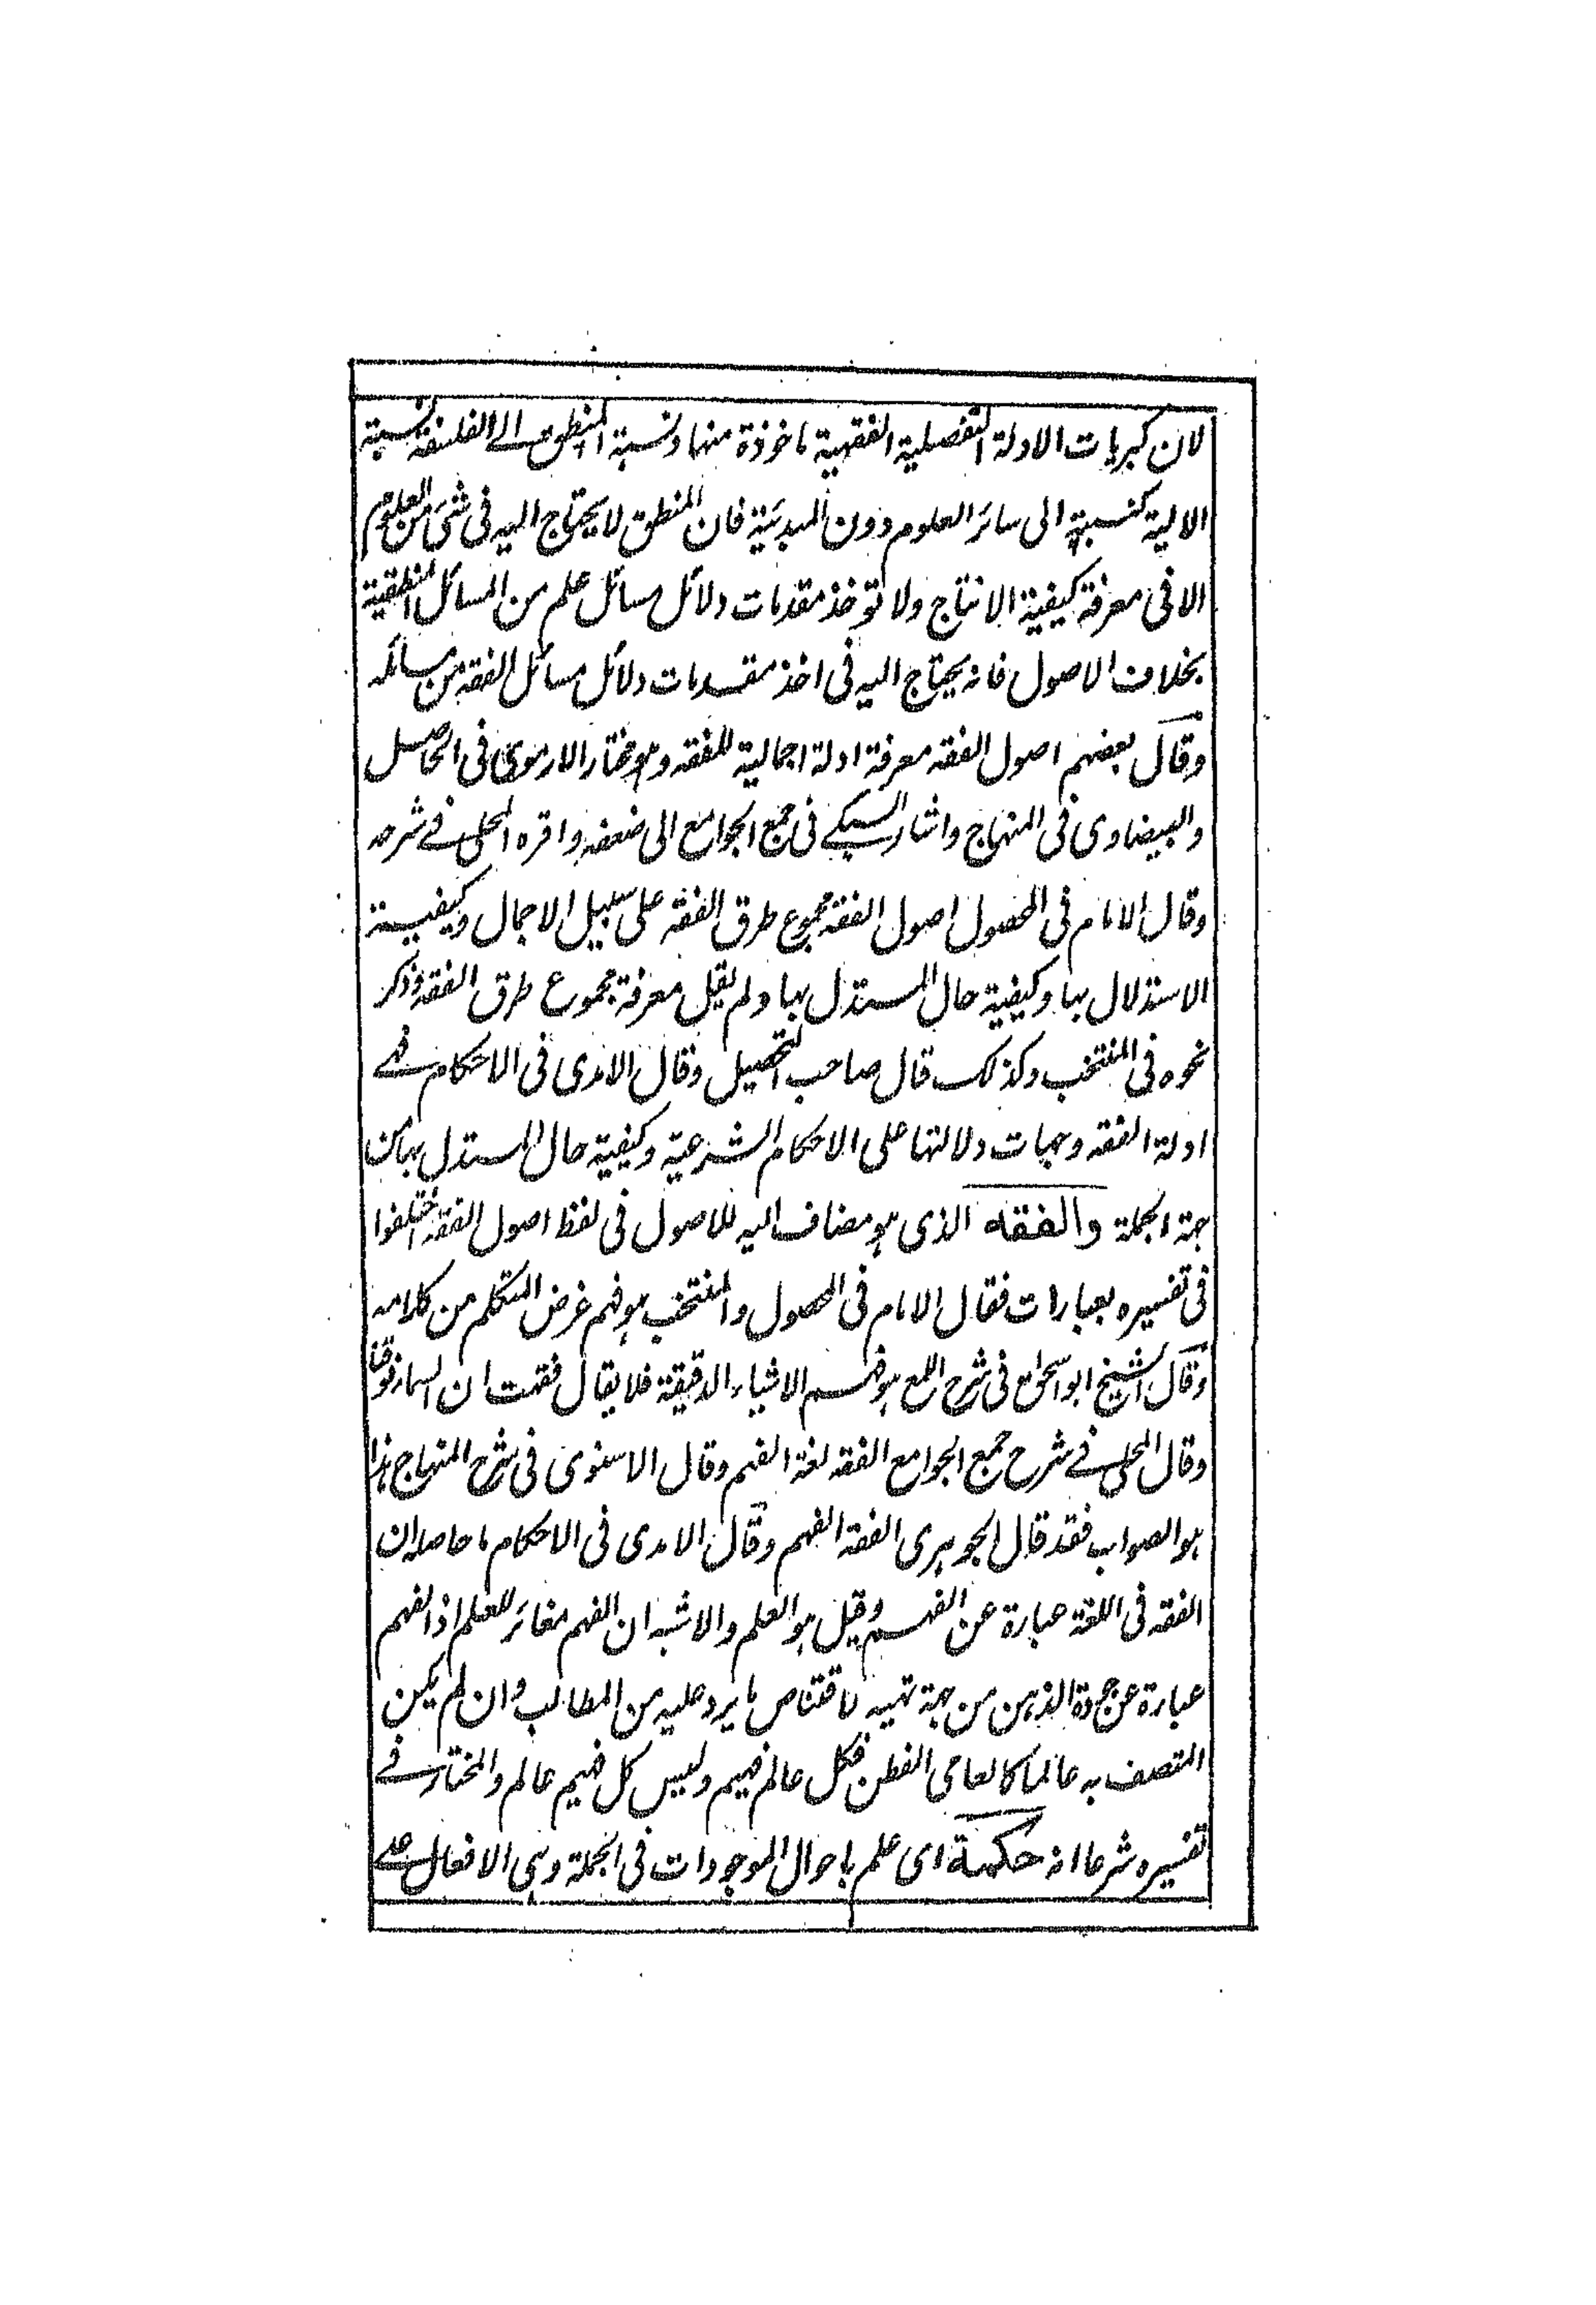 لان كبريات الادلة التفصيلية الفقهية ماخوذة منها ونسبة المنطق الى الفلسفة نسبة
الالية كنسبة الى سائر العلوم دون المبدئية فان المنطق لا يحتاج اليه فى شئ من العلوم
الا فى معرفة كيفية الانتاج ولا تؤخذ مقدمات دلائل مسائل علم من المسائل المنطقية
بخلاف الاصول فانه يحتاج اليه فى اخذ مقدمات دلائل مسائل الفقه من مسائله
وقال بعضهم اصول الفقه معرفة ادلة اجمالية للفقه وهو مختار الارموى فى الحاصل
والبيضاوى فى المنهاج واشار السبكى فى جمع الجوامع الى ضعفه واقره المحلى فى شرحه
وقال الامام فى المحصول اصول الفقه مجموع طرق الفقه على سبيل الاجمال وكيفية
الاستدلال بها وكيفية حال المستدل بها ولم يقل معرفة مجموع طرق الفقه وذكر
نحوه فى المنتخب وكذلك قال صاحب التحصيل وقال الامدى فى الاحكام هى
ادلة الفقه وجهات دلالتها على الاحكام الشرعية وكيفية حال المستدل بها من
جهة الجملة والفقه الذى هو مضاف اليه للاصول فى لفظ اصول الفقه اختلفوا
فى تفسيره بعبارات فقال الامام فى المحصول والمنتخب هو فهم غرض المتكلم من كلامه
وقال الشيخ ابو اسحق فى شرح اللمع هو فهم الاشياء الدقيقة فلا يقال فقهت ان السماء فوقنا
وقال المحلى فى شرح جمع الجوامع الفقه لغة الفهم وقال الاسنوى فى شرح المنهاج هذا
هو الصواب فقد قال الجوهرى الفقه الفهم وقال الامدى فى الاحكام ما حاصله ان
الفقه فى اللغة عبارة عن الفهم وقيل هو العلم والاشبه ان الفهم مغائر للعلم اذ الفهم
عبارة عن جودة الذهن من جهة تهيه لاقتناص ما يرد عليه من المطالب وان لم يكن
المتصف به عالما كالعامى الفطن فكل عالم فهيم وليس كل فهيم عالم والمختار فى
تفسيره شرعا انه حكمة اى علم باحوال الموجودات فى الجملة وهى الافعال على